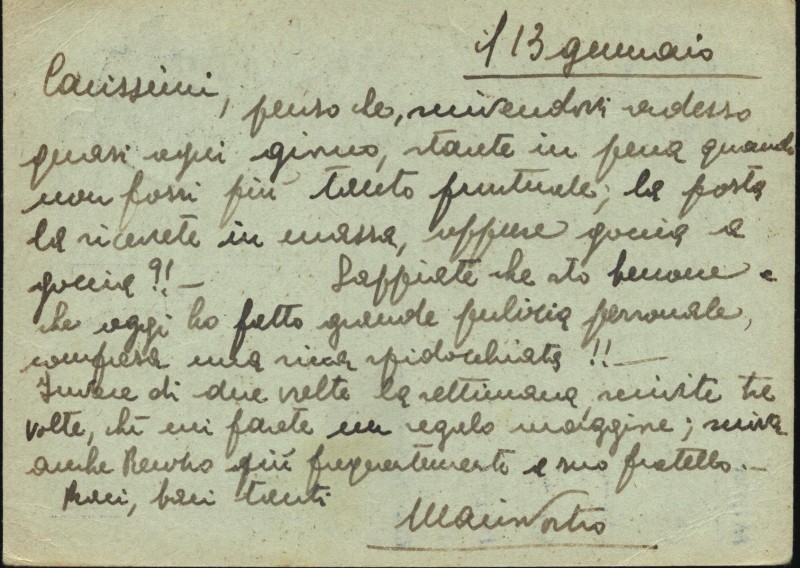 il 13 gennaio
Carissimi, penso che, scrivendovi adesso
quasi ogni giorno, stiate in pena quando
non fossi più tanto puntuale; la posta
la ricevete in massa, oppure goccia a
goccia?!! — Sappiate che sto benone e
che oggi ho fatto grande pulizia personale,
compresa una ricca spidocchiata!! —
Invece di due volte la settimana, scrivete tre
volte, chè mi farete un regalo maggiore; scriva
anche Renzo più frequentemente a suo fratello. —
Baci, baci tanti